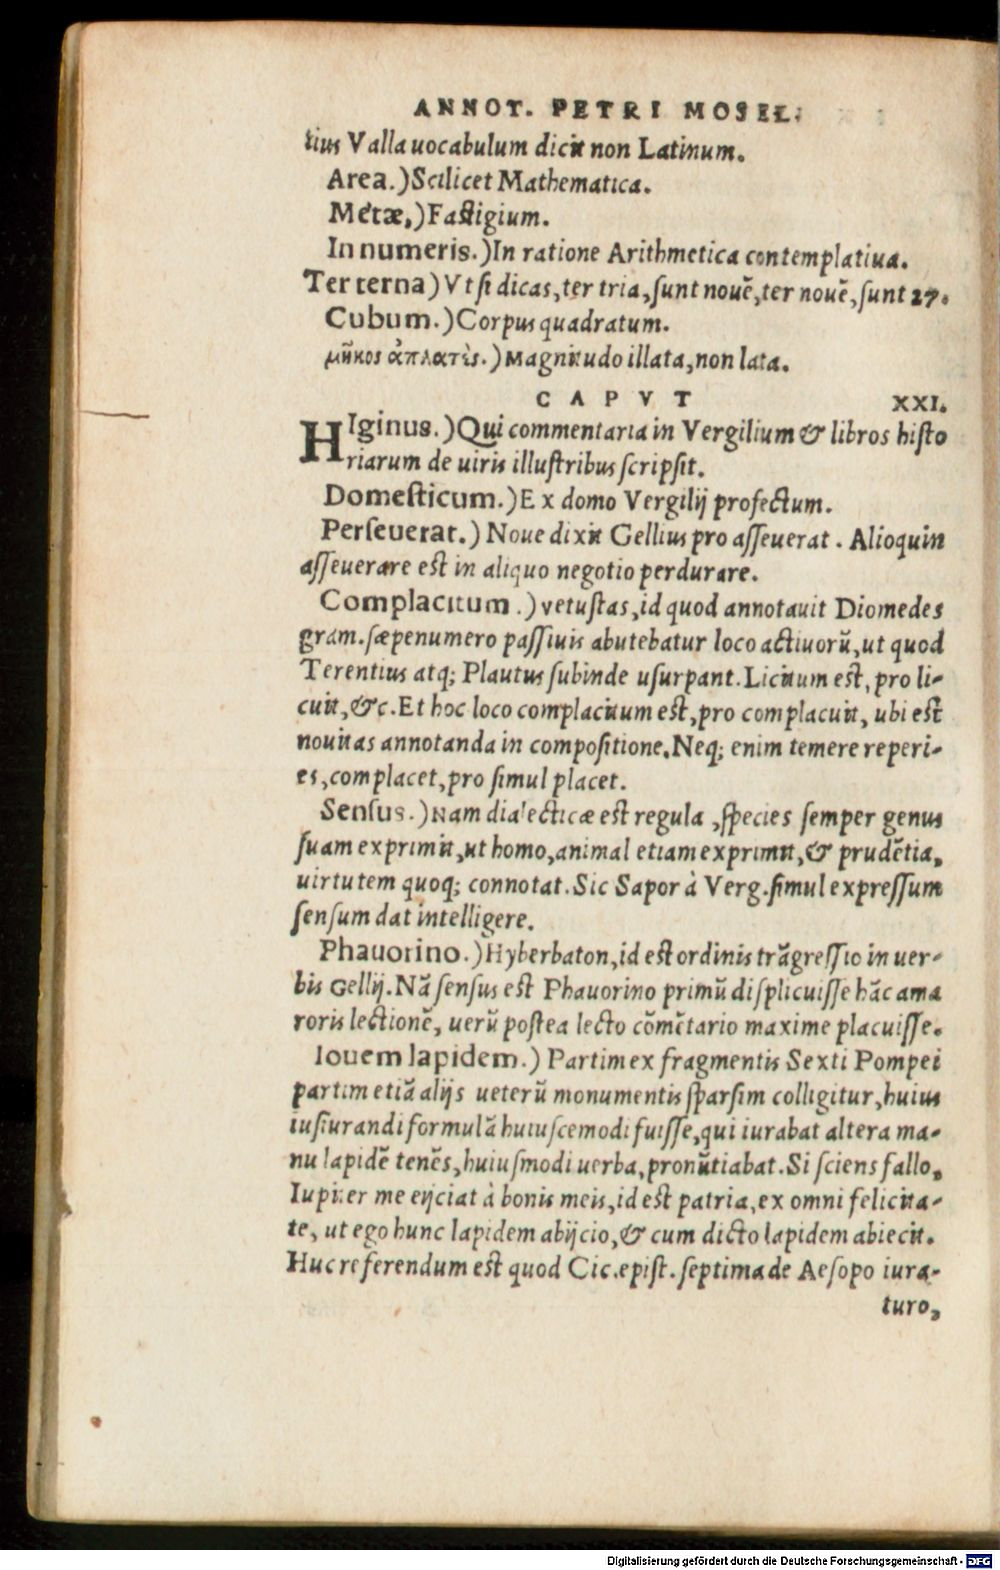 ANNOT. PETRI MOSEL.
tius Valla uocabulum dicit non Latinum.
Area.) Scilicet Mathematica.
Metæ,) Fastigium.
In numeris.) In ratione Arithmetica contemplatiua.
Ter terna) Vt si dicas, ter tria, sunt nouẽ, ter nouẽ, sunt 27.
Cubum.) Corpus quadratum.
μῆκος ἀπλατὲς.) Magnitudo illata, non lata.
CAPVT XXI.
HIginus.) Qui commentaria in Vergilium & libros histo
riarum de uiris illustribus scripsit.
Domesticum.) Ex domo Vergilij profectum.
Perseuerat.) Noue dixit Gellius pro asseuerat. Alioquin
asseuerare est in aliquo negotio perdurare.
Complacitum.) vetustas, id quod annotauit Diomedes
gram. sæpenumero passiuis abutebatur loco actiuorũ, ut quod
Terentius atq; Plautus subinde usurpant. Licitum est, pro li-
cuit, &c. Et hoc loco complacitum est, pro complacuit, ubi est
nouitas annotanda in compositione. Neq; enim temere reperi-
es, complacet, pro simul placet.
Sensus.) Nam dialecticæ est regula, species semper genus
suam exprimit, ut homo, animal etiam exprimit, & prudẽtia,
uirtutem quoq; connotat. Sic Sapor à Verg. simul expressum
sensum dat intelligere.
Phauorino.) Hyberbaton, id est ordinis trãgressio in uer-
bis Gellij. Nã sensus est Phauorino primũ displicuisse hãc ama
roris lectionẽ, uerũ postea lecto cõmẽtario maxime placuisse.
Iouem lapidem.) Partim ex fragmentis Sexti Pompei
partim etiã alijs ueterũ monumentis sparsim colligitur, huius
iusiurandi formulã huiuscemodi fuisse, qui iurabat altera ma-
nu lapidẽ tenẽs, huiusmodi uerba, pronũtiabat. Si sciens fallo,
Iupiter me eijciat à bonis meis, id est patria, ex omni felicita-
te, ut ego hunc lapidem abijcio, & cum dicto lapidem abiecit.
Huc referendum est quod Cic. epist. septima de Aesopo iura-
turo,
Digitalisierung gefördert durch die Deutsche Forschungsgemeinschaft - DFG